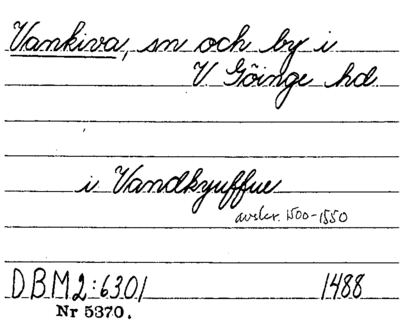 Vankiva, sn och by i
V. Göinge hd.
i Vandkyuffue
avskr. 1500-1550
DBM2:6301 1488
Nr 5370.